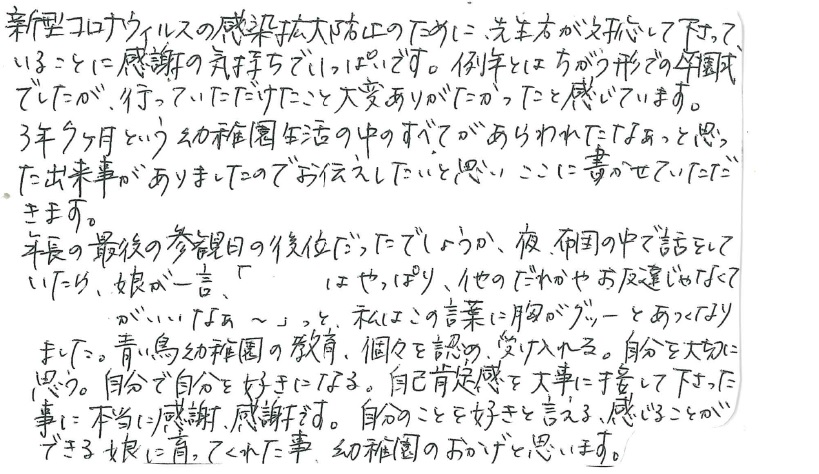 新型コロナウィルスの感染拡大防止のために、先生方が対応して下さって
いることに感謝の気持ちでいっぱいです。例年とはちがう形での卒園式
でしたが、行っていただけたこと大変ありがたかったと感じています。
3年9ヶ月という幼稚園生活の中のすべてがあらわれたなぁっと思っ
た出来事がありましたのでお伝えしたいと思い ここに書かせていただ
きます。
年長の最後の参観日の後位だったでしょうか、夜、布団の中で話をして
いたら、娘が一言、「　　　はやっぱり、他のだれかやお友達じゃなくて
がいいなぁ～」っと、私はこの言葉に胸がグッーとあつくなり
ました。青い鳥幼稚園の教育、個々を認め、受け入れる。自分を大切に
思う。自分で自分を好きになる。自己肯定感を大事に接して下さった
事に本当に感謝、感謝です。自分のことを好きと言える、感じることが
できる娘に育ってくれた事、幼稚園のおかげと思います。